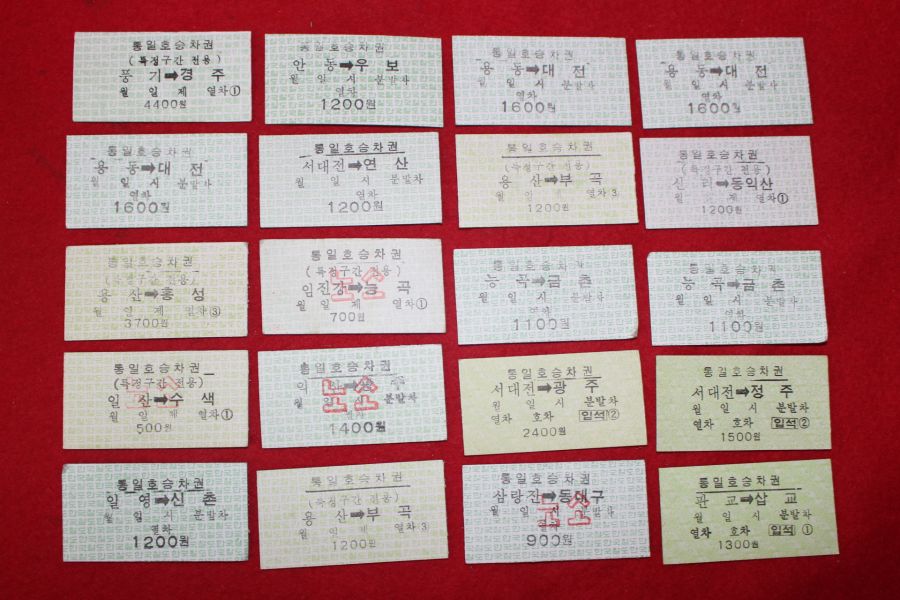 통일호승차권
(특정구간 전용)
풍 기➡경 주
월 일 제 열차①
4400원
통일호승차권
안 동➡우 보
월 일 시 분발차
열차
1200원
통일호승차권
용 동➡대 전
월 일 시 분발차
열차
1600원
통일호승차권
용 동➡대 전
월 일 시 분발차
열차
1600원
통일호승차권
용 동➡대 전
월 일 시 분발차
열차
1600원
통일호승차권
서대전➡연 산
월 일 시 분발차
열차
1200원
통일호승차권
(특정구간 전용)
용 산➡부 곡
월 일 제 열차③
1200원
통일호승차권
(특정구간 전용)
신 리➡동익산
월 일 제 열차①
1200원
통일호승차권
(특정구간 전용)
용 산➡홍 성
월 일 제 열차③
3700원
통일호승차권
(특정구간 전용)
임진강➡능 곡
월 일 제 열차①
700원
통일호승차권
능 곡➡금 촌
월 일 시 분발차
열차
1100원
통일호승차권
능 곡➡금 촌
월 일 시 분발차
열차
1100원
통일호승차권
(특정구간 전용)
일 산➡수 색
월 일 제 열차①
500원
통일호승차권
월 일 시 분발차
열차
1400원
통일호승차권
서대전➡광 주
월 일 시 분발차
열차 호차 입석②
2400원
통일호승차권
서대전➡정 주
월 일 시 분발차
열차 호차 입석②
1500원
통일호승차권
일 영➡신 촌
월 일 시 분발차
열차
1200원
통일호승차권
(특정구간 전용)
용 산➡부 곡
월 일 제 열차③
1200원
통일호승차권
삼랑진➡동대구
월 일 시 분발차
열차
900원
통일호승차권
판 교➡삽 교
월 일 시 분발차
열차 호차 입석①
1300원